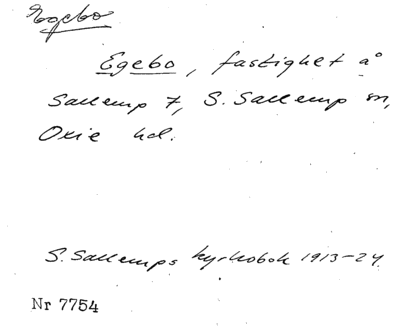 Egebo
Egebo, fastighet å
Sallerup 7, S. Sallerup sn,
Oxie hd.
S. Sallerups kyrkobok 1913-24.
Nr 7754